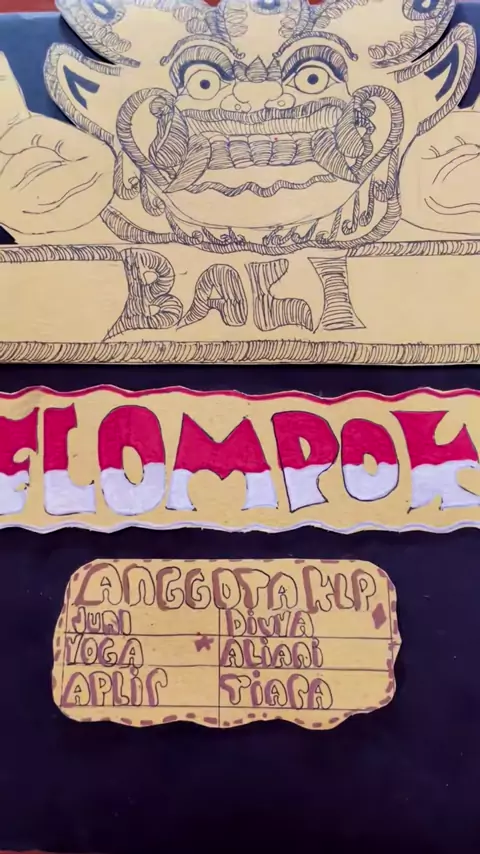 BALI
ELOMPOK
ANGGOTA KLP
JUNI DIVVA
YOGA * ALIANI
APLIS TIARA